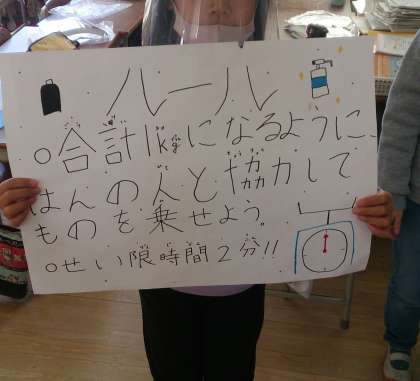 ルール
○合計1kgになるように、
はんの人と協力して
ものを乗せよう。
○せい限時間2分!!